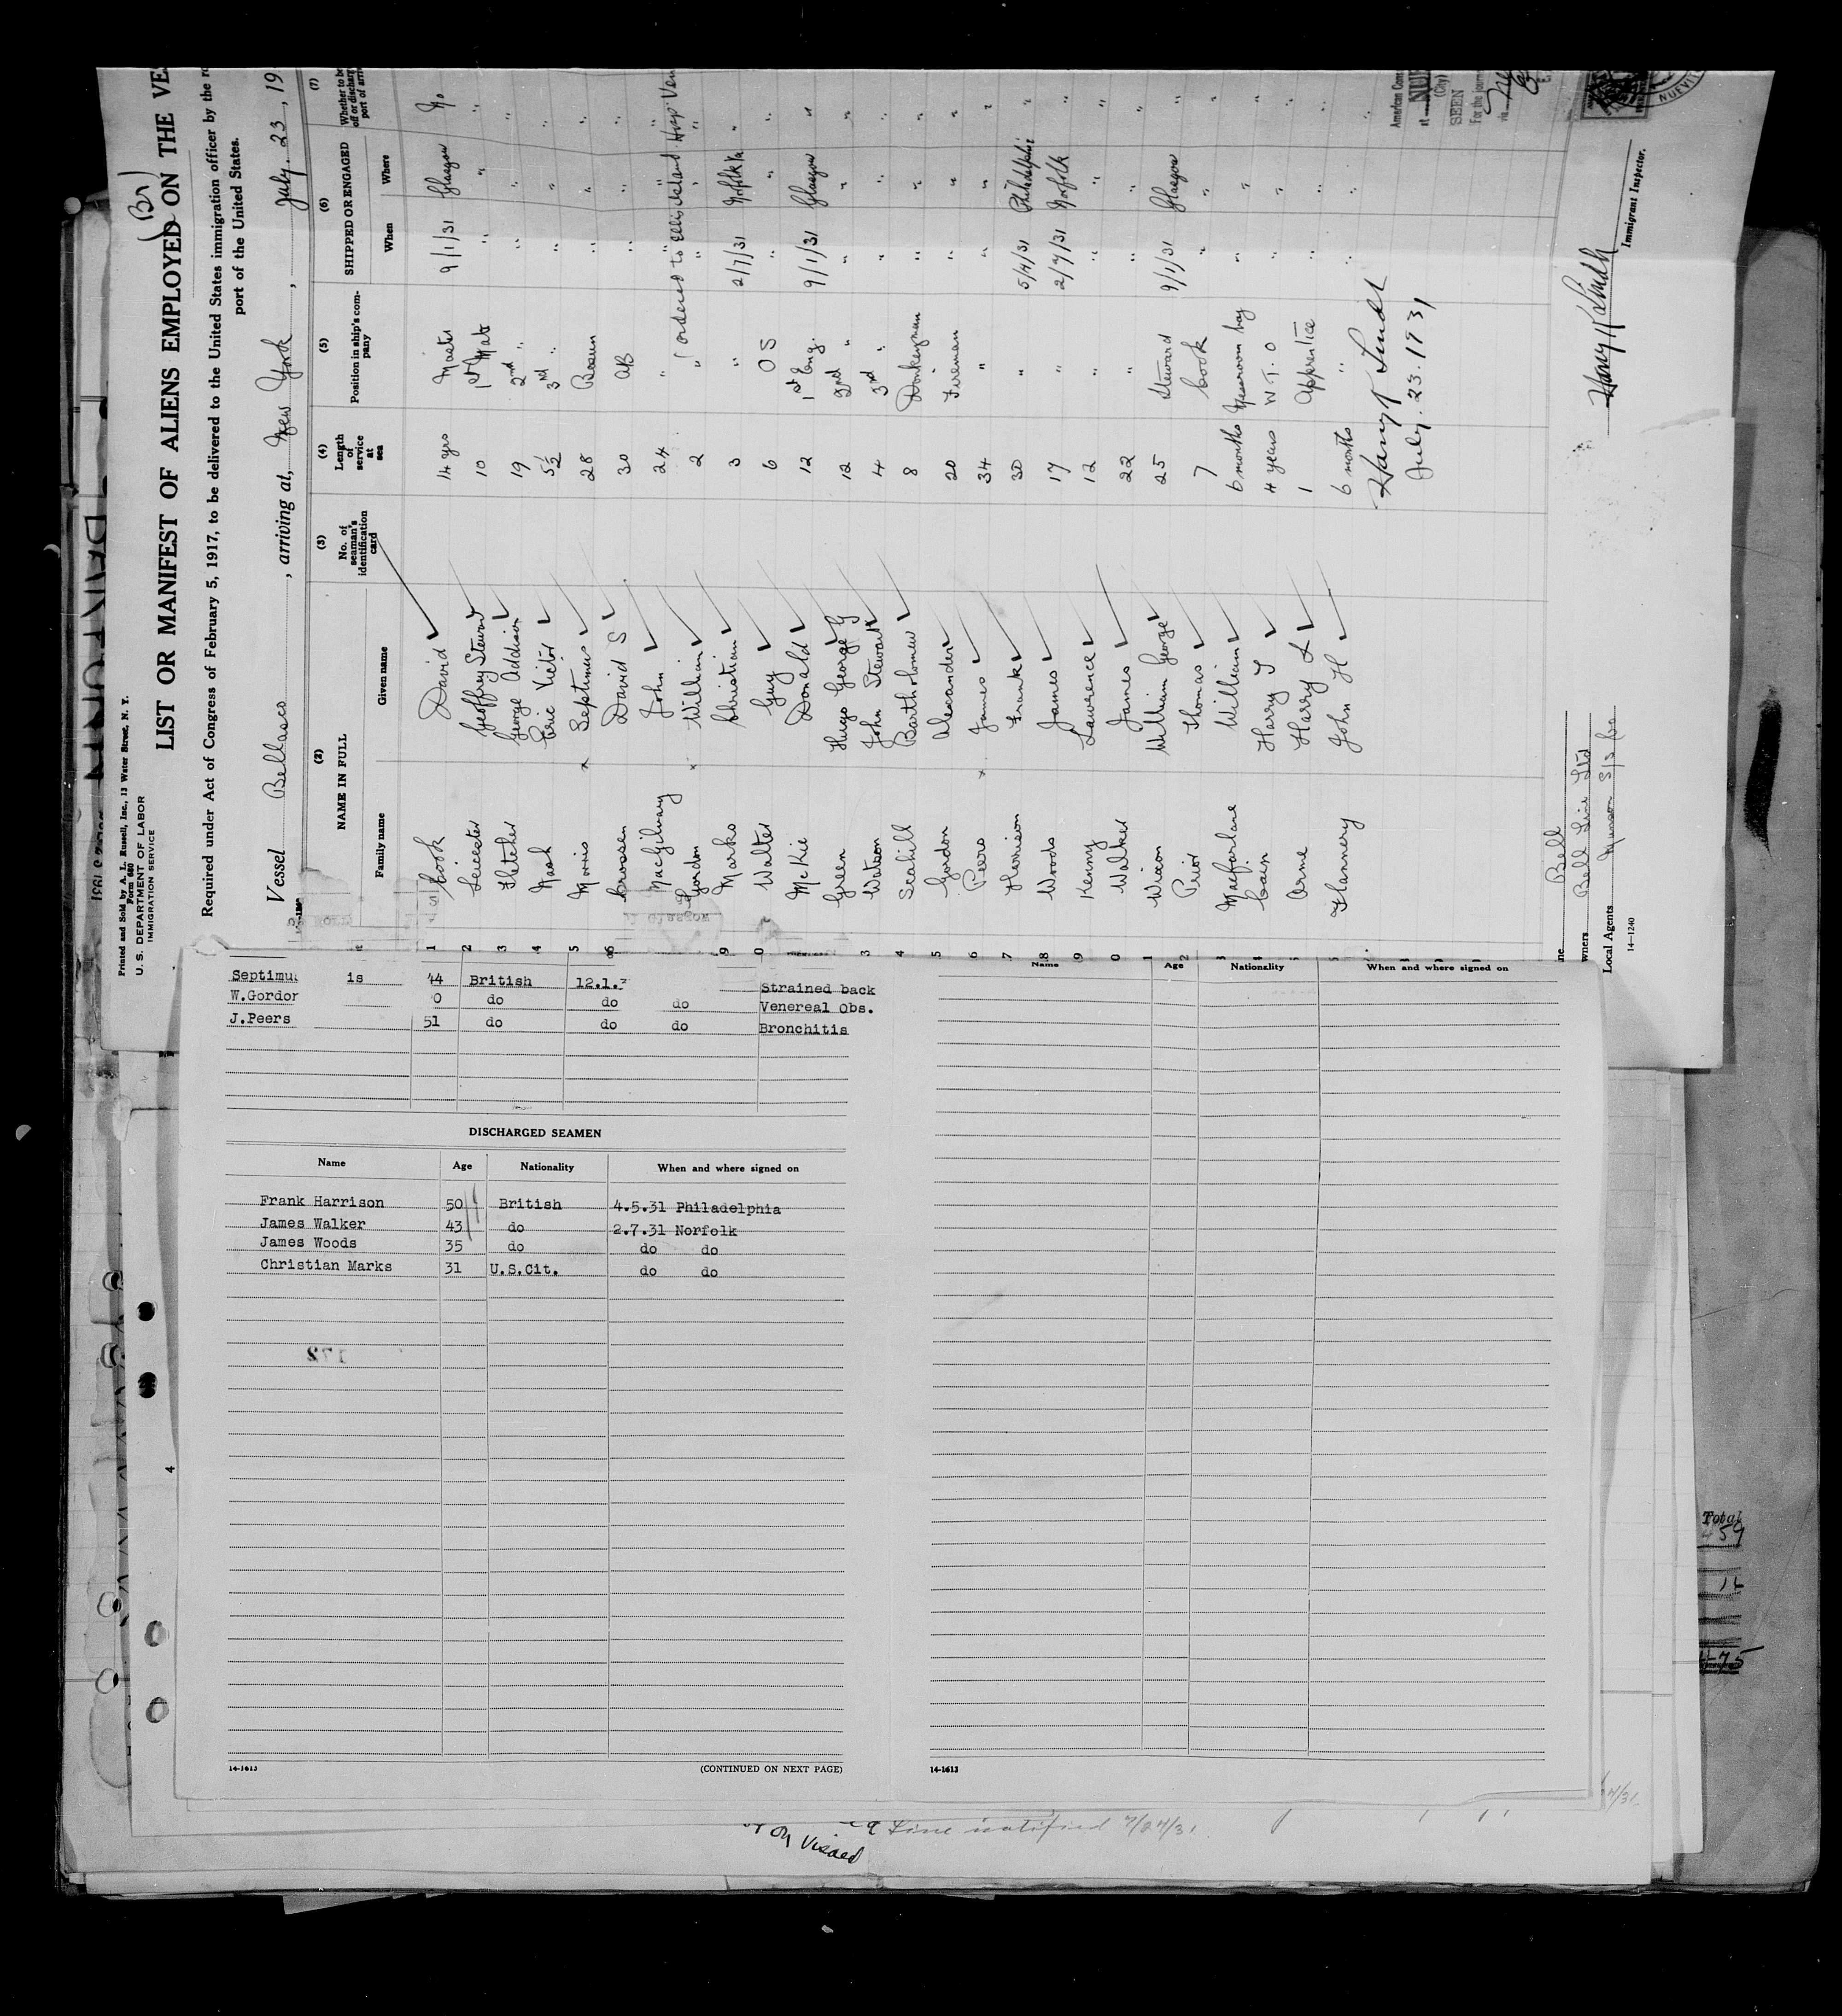 (Br)
Printed and Sold by A. L. Russell, Inc., 13 Water Street, N. Y.
Form 680
U. S. DEPARTMENT OF LABOR
IMMIGRATION SERVICE
LIST OR MANIFEST OF ALIENS EMPLOYED ON THE VE
Required under Act of Congress of February 5, 1917, to be delivered to the United States immigration officer by the
port of the United States.
Vessel Bellasco, arriving at, New York, July. 23, 19
(2) (3) (4) (5) (6) (7)
NAME IN FULL No. of seaman's identification card Length of service at sea Position in ship's company SHIPPED OR ENGAGED Whether to be
Family name Given name When Where
1 Cook David 14 yrs Master 9/1/31 Glasgow No
2 Leicester Geoffrey Steward 10 1st Mate " " "
3 Fletcher George Addison 19 2nd " " " "
4 Nash Eric Victor 5½ 3rd " " " "
5 Morris x Septimus 28 Bosun " " "
6 Crossen David S 30 AB " " "
MacGilvary John 24 " " " "
Gordon x William 2 " (ordered to Ellis Island Hosp. Ven
9 Marks Christian 3 " 2/7/31 Norfolk Va "
0 Walter Guy 6 O S " " "
McKie Donald 12 1st Eng. 9/1/31 Glasgow "
Green Hugo George G 12 2nd " " " "
3 Watson John Stewart 4 3rd " " " "
4 Scahill Bartholomew 8 Donkeyman " " "
5 Gordon Alexander 20 Fireman " " "
6 Peers x James 34 " " " "
7 Harrison Frank 30 " 5/4/31 Philadelphia "
8 Woods James 17 " 2/7/31 Norfolk "
9 Kenny Lawrence 12 " " " "
0 Walker James 22 " " " "
1 Wixon William George 25 Steward 9/1/31 Glasgow "
2 Prior Thomas 7 Cook " " "
Macfarlane William 6 months Messroom boy " " "
Cain Harry 4 years W. T. O " " "
Orme Harry L 1 Apprentice " " "
Flannery John H 6 months " " " "
July. 23. 1931
American Cons
at NUE
(City)
SEEN
For the jour
via
NUEVIT
Immigrant Inspector.
Bell
wners Bell Line Ltd
Local Agents Munson S/S Co
14—1240
Septimu is 44 British 12.1. Strained back
W.Gordor 0 do do do Venereal Obs.
J.Peers 51 do do do Bronchitis
DISCHARGED SEAMEN
Name Age Nationality When and where signed on
Frank Harrison 50 British 4.5.31 Philadelphia
James Walker 43 do 2.7.31 Norfolk
James Woods 35 do do do
Christian Marks 31 U.S.Cit. do do
14-1613 (CONTINUED ON NEXT PAGE)
Name Age Nationality When and where signed on
14-1613
4
Total
459
Line notified 7/24/31
on Visaed